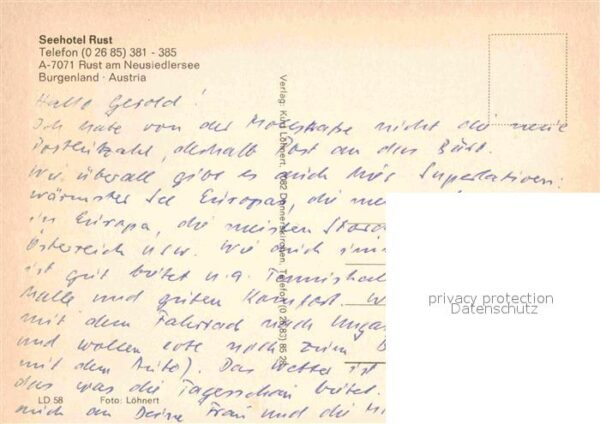 Seehotel Rust
Telefon (0 26 85) 381 - 385
A-7071 Rust am Neusiedlersee
Burgenland · Austria
Hallo Gerold!
Ich habe von der nicht die neue
Postleitzahl, deshalb Post an das Büro.
Wie überall gibt es auch hier Superlativen:
wärmster See Europas, die
in Europa, die meisten
Österreich usw. Wie auch
ist gut bietet u.a. Tennishal
halle und guten Komfort. W
mit dem Fahrrad nach Ungar
und wollen evt. noch zum
mit dem Auto). Das Wetter ist
das was die Tagesschau bietet.
mich an Deine Frau und die
Verlag: Kurt Löhnert, 7082 Donnerskirchen, Telefon (0 26 83) 85 28
privacy protection
Datenschutz
LD 58 Foto: Löhnert